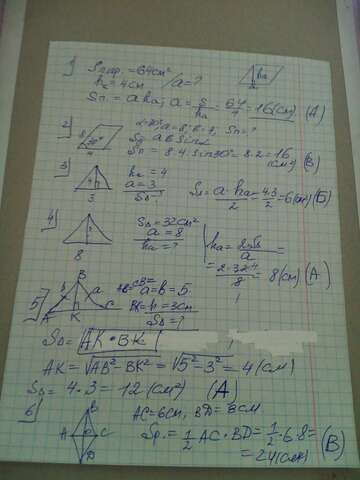 1) Sпар. = 64 см²
hₐ = 4 см / a = ?
hₐ
Sп = a hₐ; a = S/hₐ = 64/4 = 16 (см) (А)
2) α=30°, a=8, b=4, Sп=?
8 30° 4
Sп = a b sinα
Sп = 8·4·sin30° = 8·2 = 16 (см²) (В)
3) hₐ = 4
a = 3
S△ - ?
3
S△ = a·hₐ/2 = 4·3/2 = 6 (см) (Б)
4) S△ = 32 см²
a = 8
hₐ = ?
8
hₐ = 2S△/a =
= 2·32/8 = 8 (см) (А)
5) B b a A K C
AB=CB= a=b=5.
BK=h=3см
S△=?
S△ = AK·BK
AK = √AB²-BK² = √5²-3² = 4 (см)
S△ = 4·3 = 12 (см²) (А)
6) AC=6см, BD=8см
B A C D
Sр. = 1/2 AC·BD = 1/2·6·8=
= 24 (см) (В)